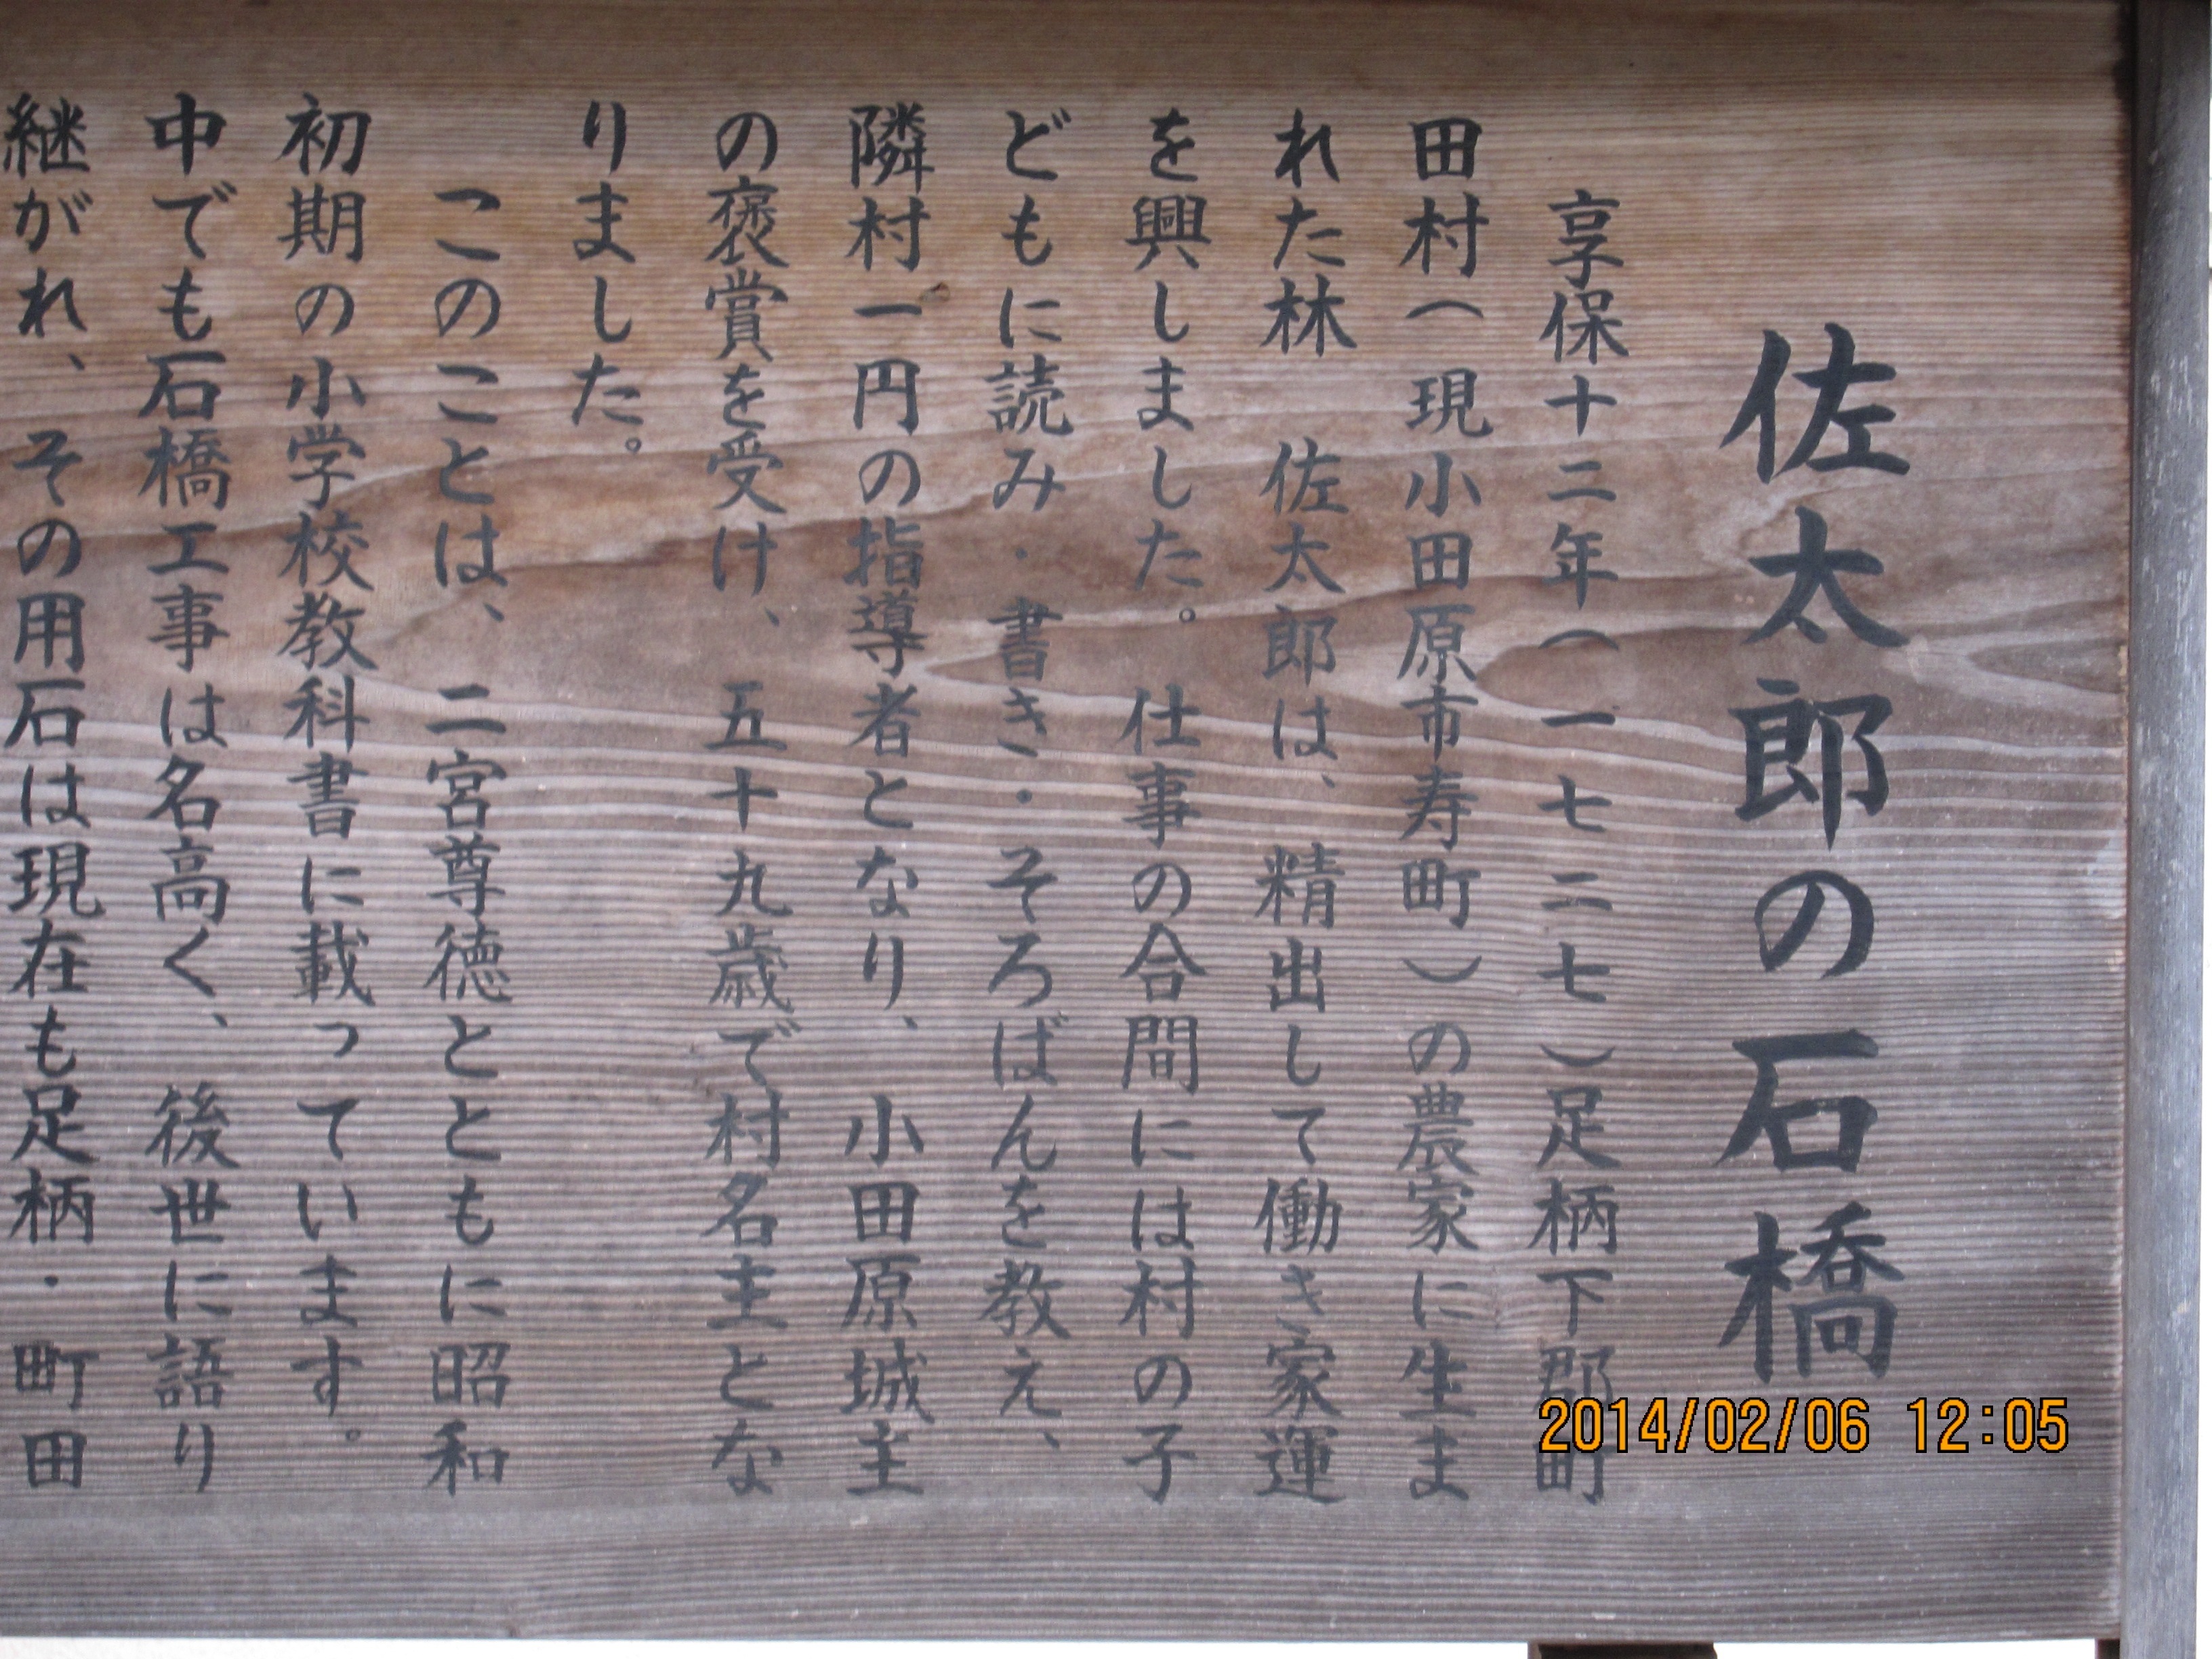 佐太郎の石橋
享保十二年（一七二七）足柄下郡町
田村（現小田原市寿町）の農家に生ま
れた林 佐太郎は、精出して働き家運
を興しました。仕事の合間には村の子
どもに読み・書き・そろばんを教え、
隣村一円の指導者となり、小田原城主
の褒賞を受け、五十九歳で村名主とな
りました。
このことは、二宮尊徳とともに昭和
初期の小学校教科書に載っています。
中でも石橋工事は名高く、後世に語り
継がれ、その用石は現在も足柄・町田
2014/02/06 12:05